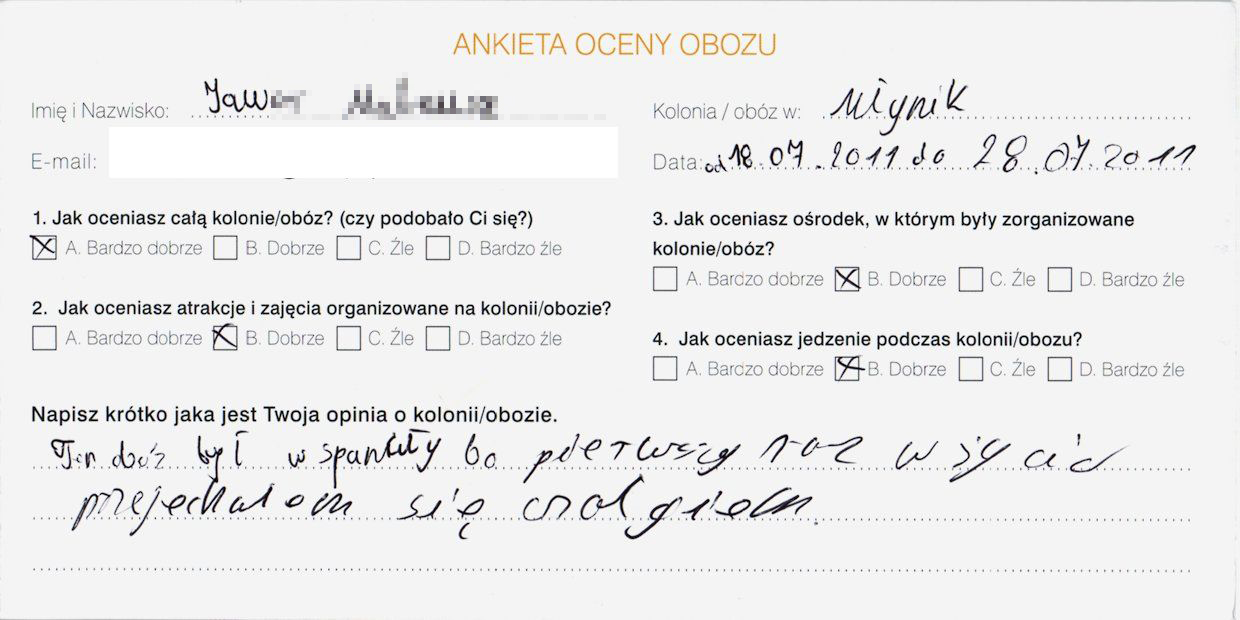 ANKIETA OCENY OBOZU
Imię i Nazwisko:
Kolonia / obóz w: Młynik
E-mail:
Data: od 18.07.2011 do 28.07.2011
1. Jak oceniasz całą kolonie/obóz? (czy podobało Ci się?)
A. Bardzo dobrze B. Dobrze C. Źle D. Bardzo źle
2. Jak oceniasz atrakcje i zajęcia organizowane na kolonii/obozie?
A. Bardzo dobrze B. Dobrze C. Źle D. Bardzo źle
3. Jak oceniasz ośrodek, w którym były zorganizowane
kolonie/obóz?
A. Bardzo dobrze B. Dobrze C. Źle D. Bardzo źle
4. Jak oceniasz jedzenie podczas kolonii/obozu?
A. Bardzo dobrze B. Dobrze C. Źle D. Bardzo źle
Napisz krótko jaka jest Twoja opinia o kolonii/obozie.
Ten obóz był wspaniały bo pierwszy raz w życiu
przejechałem się czołgiem.